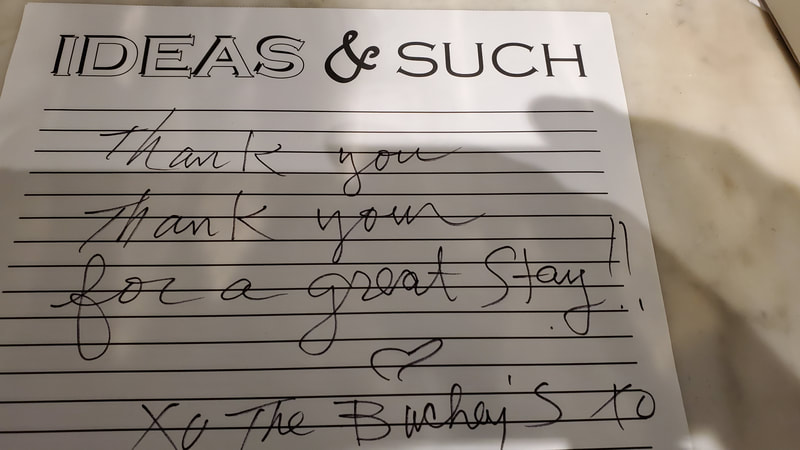 IDEAS & SUCH
Thank you
Thank you
for a great Stay!!
XO The Buchey's XO